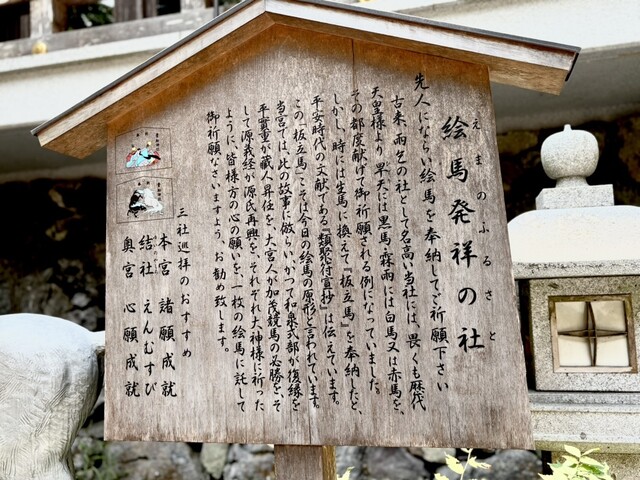 えまのふるさと
絵馬発祥の社
先人にならい絵馬を奉納してご祈願下さい
古来、雨乞の社として名高い当社には、畏くも歴代
天皇様より、旱天には黒馬、霖雨には白馬又は赤馬を、
その都度献げて御祈願される例になっていました。
しかし、時には生馬に換えて『板立馬』を奉納したと、
平安時代の文献である『類聚符宣抄』は伝えています。
この「板立馬」こそは今日の絵馬の原形と言われています。
当宮では、此の故事に倣い、かつて和泉式部が復縁を
平實重が蔵人昇任を、大宮人が加茂競馬の必勝を、そ
して源義経が源氏再興を、それぞれ大神様に祈った
ように、皆様方の心の願いを、一枚の絵馬に託して
御祈願なさいますよう、お勧め致します。
三社巡拝のおすすめ
本宮 諸願成就
結社 えんむすび
奥宮 心願成就